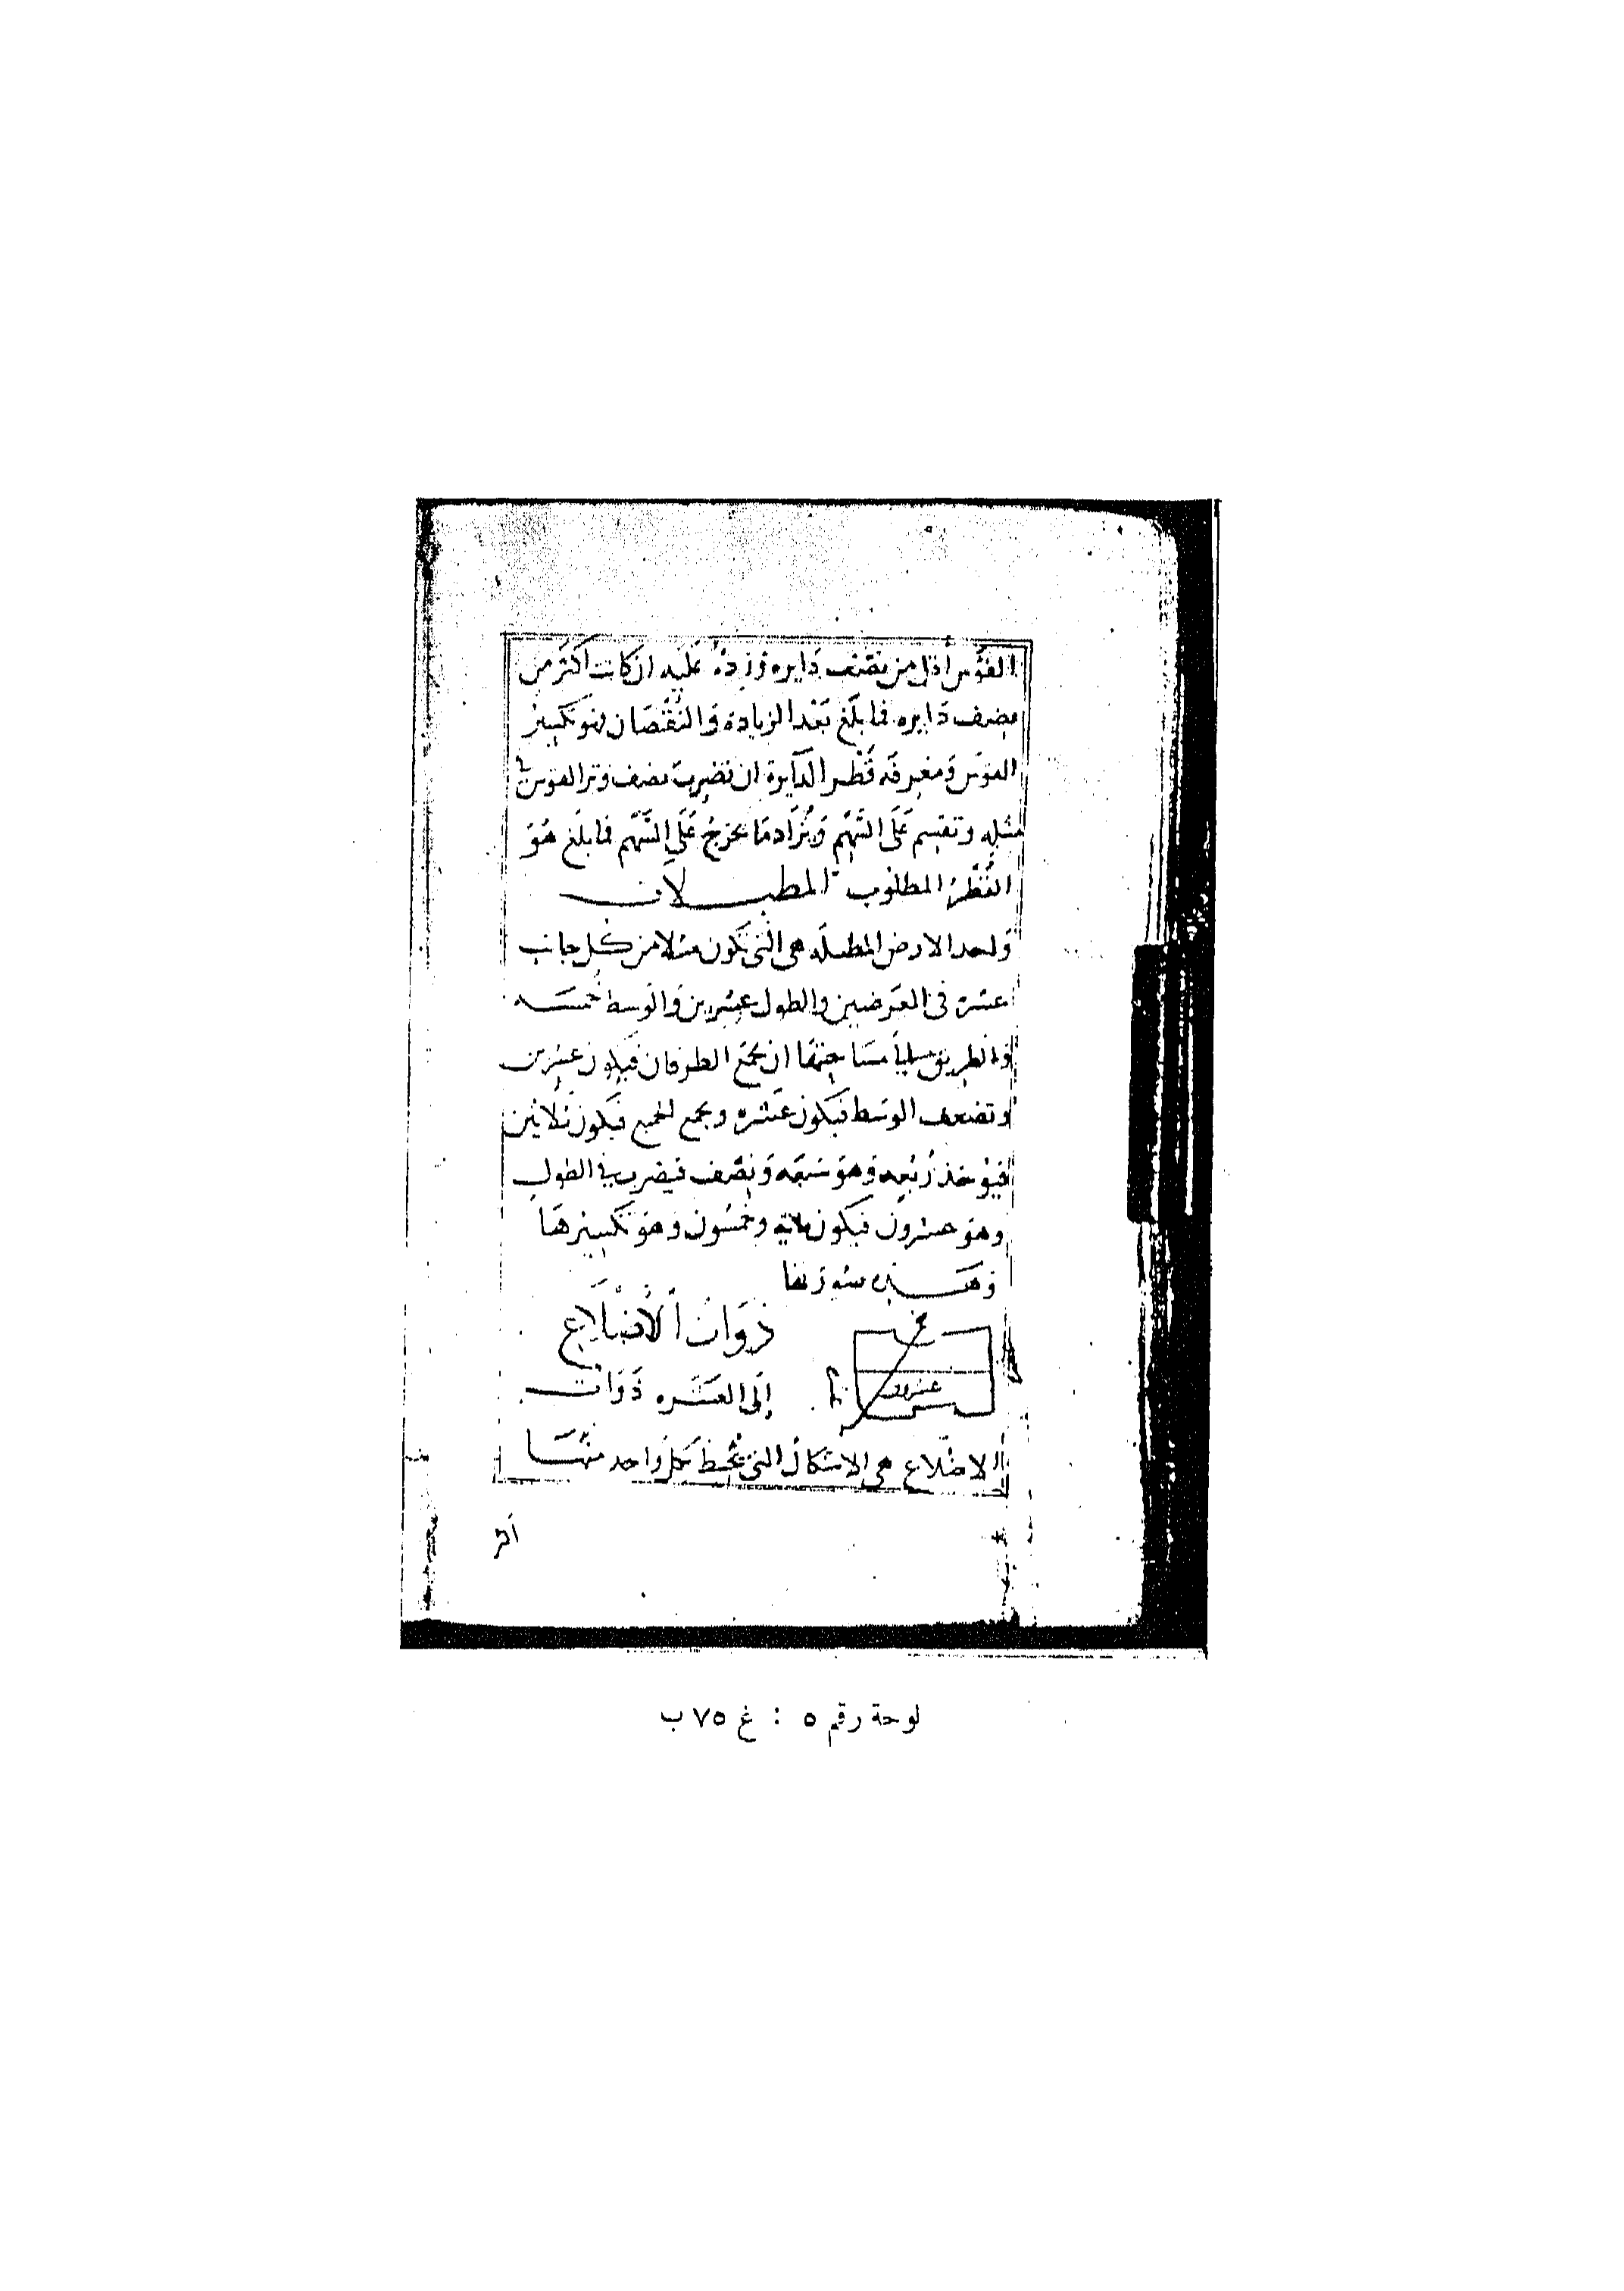 القَوْس أقل من نصف دَايره وَزِدْهُ عَلَيه ان كانت اكثر من
نصف دَايره فما بلَغ بَعْد الزيادة وَالنُقْصَان فهو تكسير
القوس وَمَعرفَه قُطْر الدَايرة ان تضرب نصف وتر القوس في
مثله وتقسم عَلَى السَّهم وَيُزَاد مَا يخرج عَلَى السَّهم فما بلَغ هُوَ
القُطْرُ المطلوب المطبــلات
وَاحد الارض المطبله هى الَّتى تكون مثلا من كل جانب
عشرة فى العَرضين والطول عشرين وَالوَسط خمســه
وَالطريق مسَاحتهَا ان يجمَع الطرفان فيكون عشرين
وتضعف الوسَط فيكون عَشره ويجمع الجميع فيكون ثلاثين
فيؤخذ رُبعه وَهو سَبعَه وَنصْف فيضرب فى الطول
وهو عشرون فيكون مايه وخمسُون وهو تكسيرهَا
وَهَــذه صورتها
ذَوَات الأَضْلاع
عشرون
إلَى العشَــره ذَوَات
الاضْلاع هى الاشكال التى يُحيط بكل وَاحد منهَــا
لوحة رقم ٥ : غ ٧٥ ب